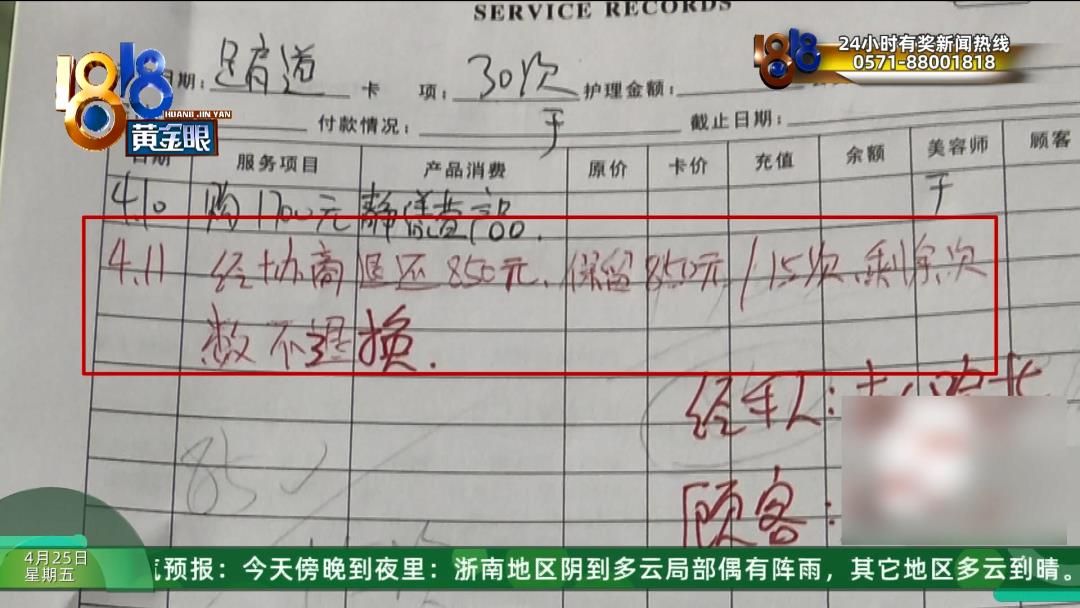 SERVICE RECORDS
1818
HUANG JIN YAN
黄金眼
1818
24小时有奖新闻热线
0571-88001818
日期: 足肩道 卡 项: 30次 护理金额:
付款情况: 于 截止日期:
日期 服务项目 产品消费 原价 卡价 充值 余额 美容师 顾客
4.10 购1700元 于
4.11 经协商退还850元、保留850元/15次、剩余次
数不退换.
经手人:
顾客:
85
4月25日
星期五
气预报：今天傍晚到夜里：浙南地区阴到多云局部偶有阵雨，其它地区多云到晴。